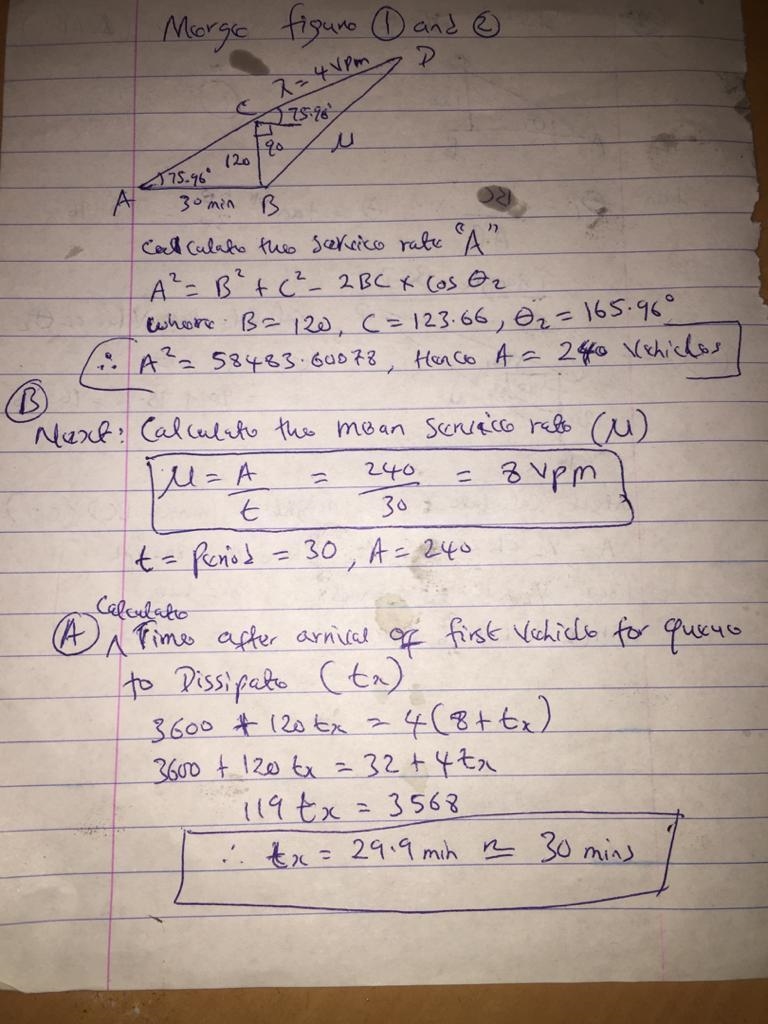 Merge figure ① and ②
λ = 4 vpm
D
C
75.96°
120
90
μ
75.96°
A
30 min
B
Calculate the service rate "A"
A² = B² + C² - 2BC x Cos θ2
where B = 120, C = 123.66, θ2 = 165.96°
∴ A² = 58483.60078, Hence A = 240 Vehicles
B
Next: Calculate the mean service rate (μ)
μ = A/t = 240/30 = 8 vpm
t = Period = 30, A = 240
Calculate
A ∧ Time after arrival of first vehicle for queue
to Dissipate (tx)
3600 + 120 tx = 4(8+tx)
3600 + 120 tx = 32 + 4tx
119 tx = 3568
∴ tx = 29.9 min ≈ 30 mins